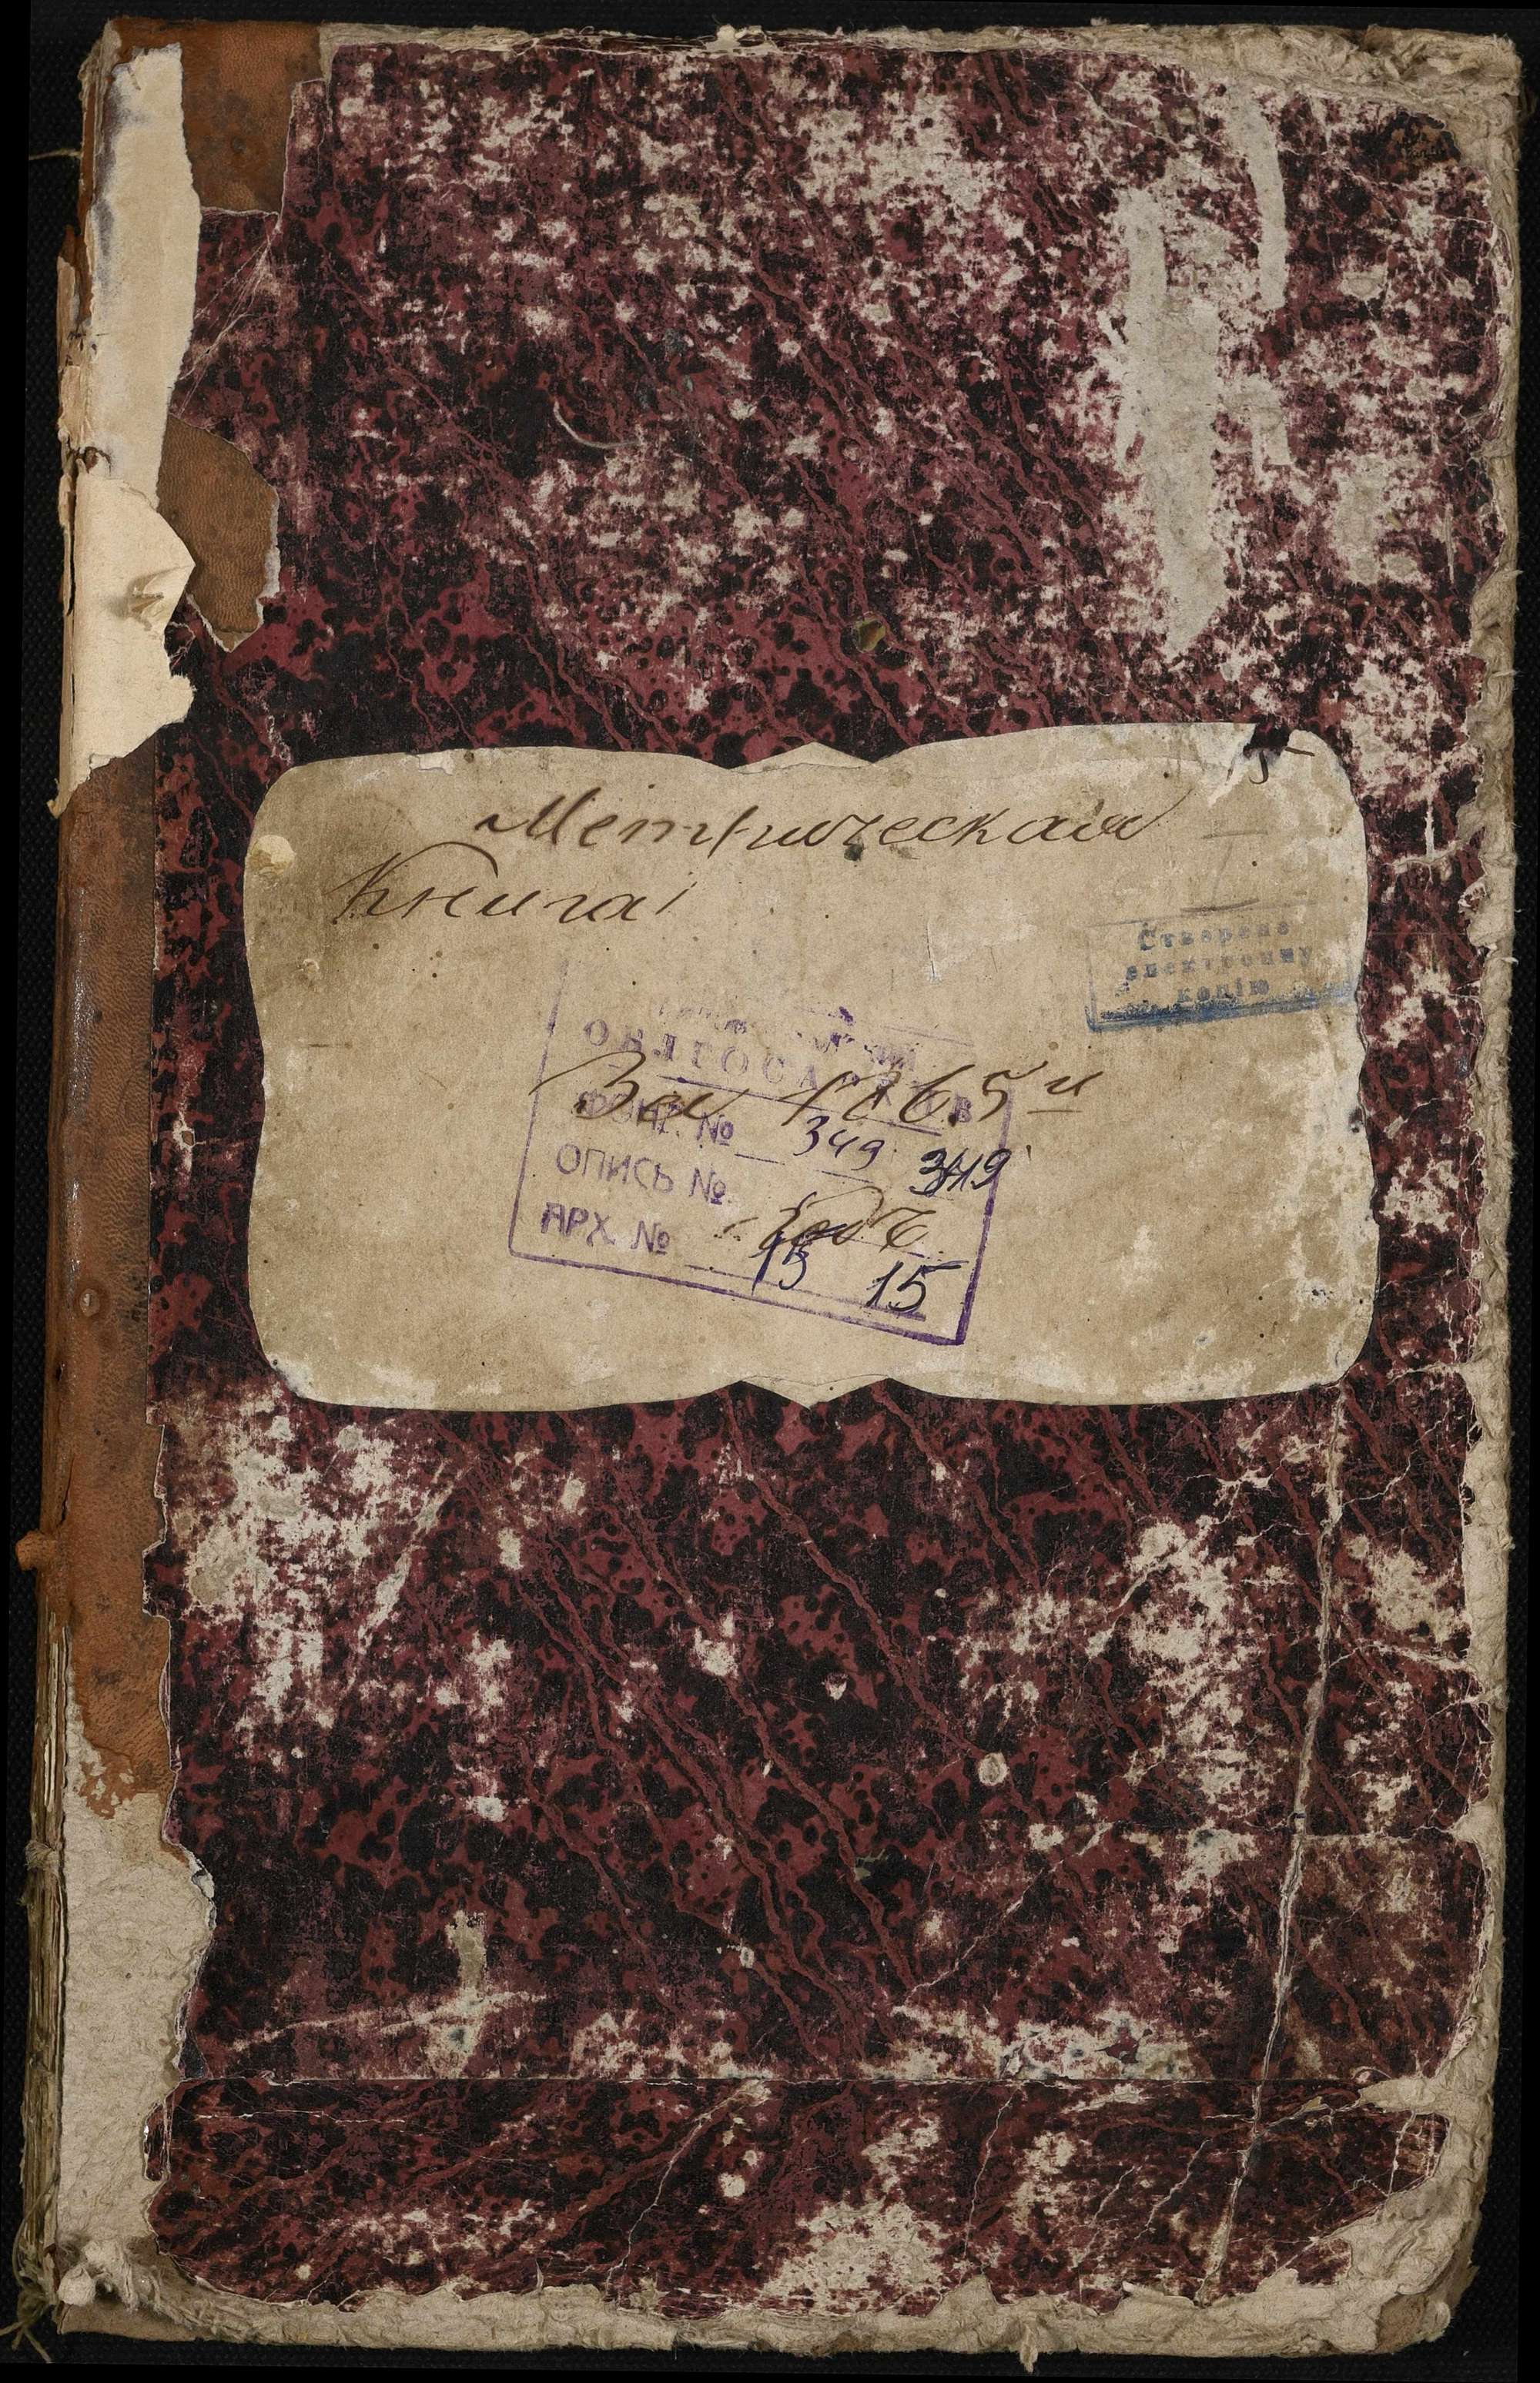 15
Метрическая
Книга
Створено
електронну
копію
ОБЛГОСАРХИВ
За 1865 й
ФОНД № 349 349
ОПИСЬ №
годъ
АРХ. № 15 15